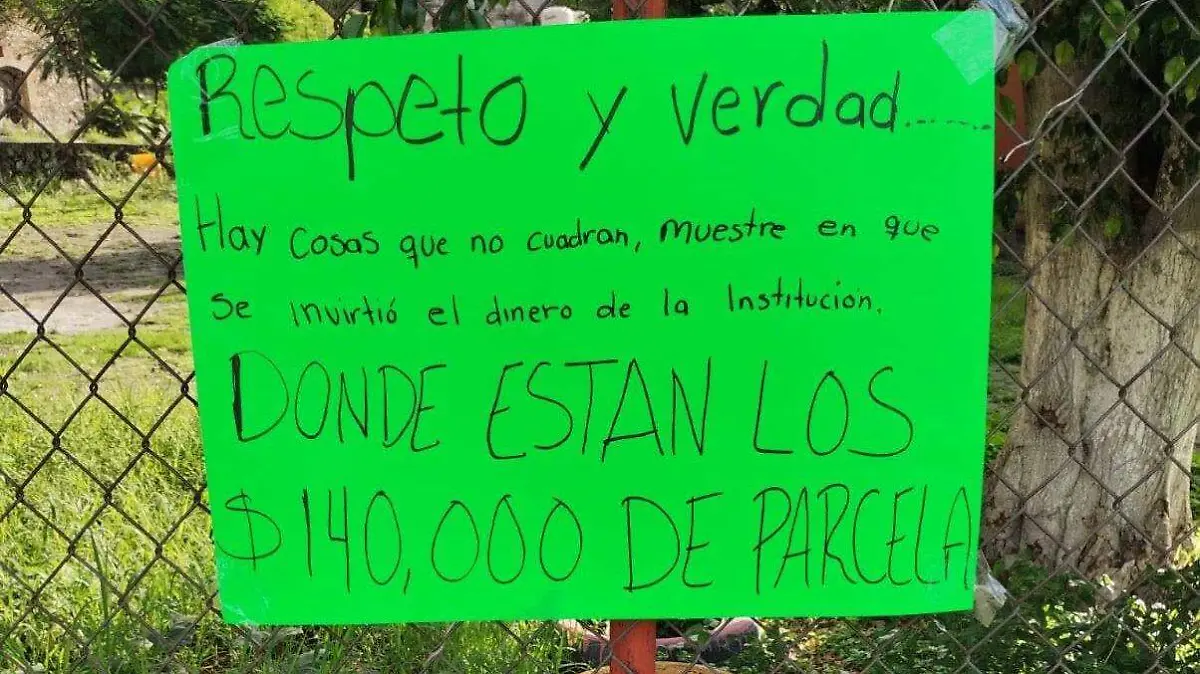 Respeto y verdad.........
Hay cosas que no cuadran, muestre en que
se invirtió el dinero de la Institución.
DONDE ESTAN LOS
$140,000 DE PARCELA